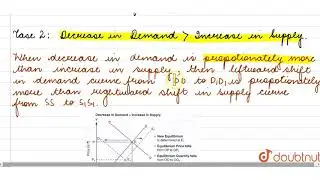 Case 2: Decrease in Demand > Increase in Supply.
When decrease in demand is propotionately more
than increase in supply, then leftward shift
in demand curve from DD to D1D1 is propotionately
more than rightward shift in supply curve
from SS to S1S1.
Decrease in Demand > Increase in Supply
New Equilibrium
is determined at E1
Equilibrium Price falls
from OP to OP1
Equilibrium Quantity falls
from OQ to OQ1
doubtnut